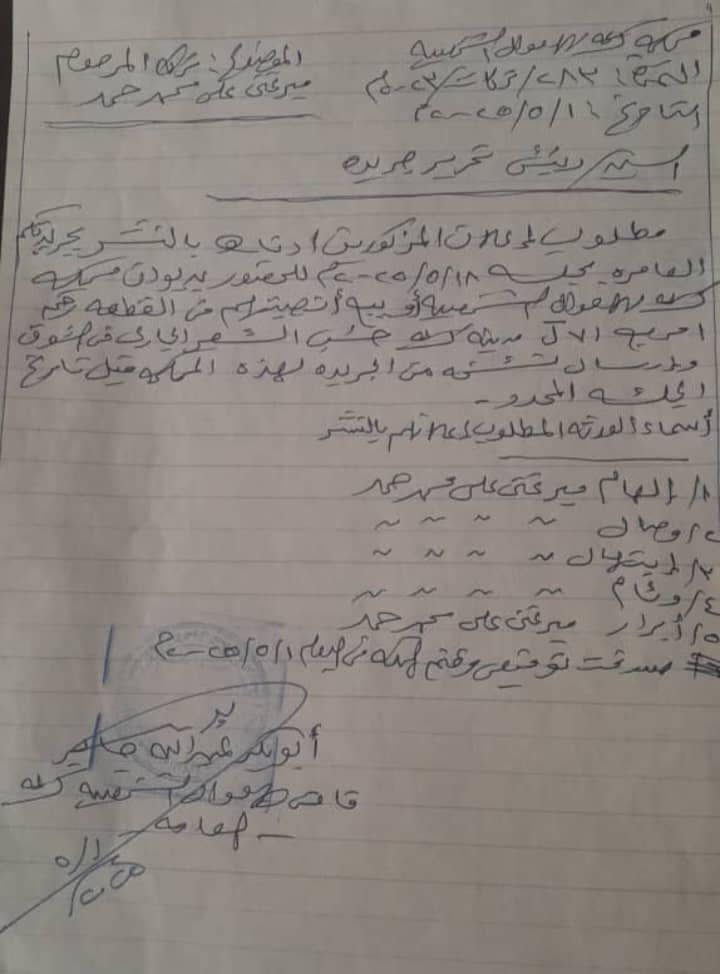 محكمة كرمه للأحوال الشخصية
النمرة: ٢٨٣/تركات/٢٠٢٣م
التاريخ: ٢٠٢٥/٥/١م
الموضوع: تركة المرحوم
ميرغني علي محمد حمد
السيد/ رئيس تحرير جريدة
مطلوب إعلان المذكورين أدناه بالنشر بجريدتكم
العامره بجلسة ٢٠٢٥/٥/١٨م للحضور بمحكمة
كرمه للأحوال الشخصية أو بيع أنصبتهم في القطعة رقم
مربع مدينة كرمه حسب السعر الجاري في السوق
وإرسال نسخه من الجريده لهذه المحكمة قبل تاريخ
الجلسه المحدد -
أسماء الورثة المطلوب إعلانهم بالنشر
١/ إلهام ميرغني علي محمد حمد
٢/ وصال ~ ~ ~ ~
٣/ إبتهال ~ ~ ~ ~
٤/ وئام ~ ~ ~ ~
٥/ أبرار ميرغني علي محمد حمد
صدر تحت توقيعي وختم المحكمة في اليوم ٢٠٢٥/٥/١م
أبوبكر عبدالله
قاضي الأحوال الشخصية كرمه
- العامة -
٥/١
٢٠٢٥